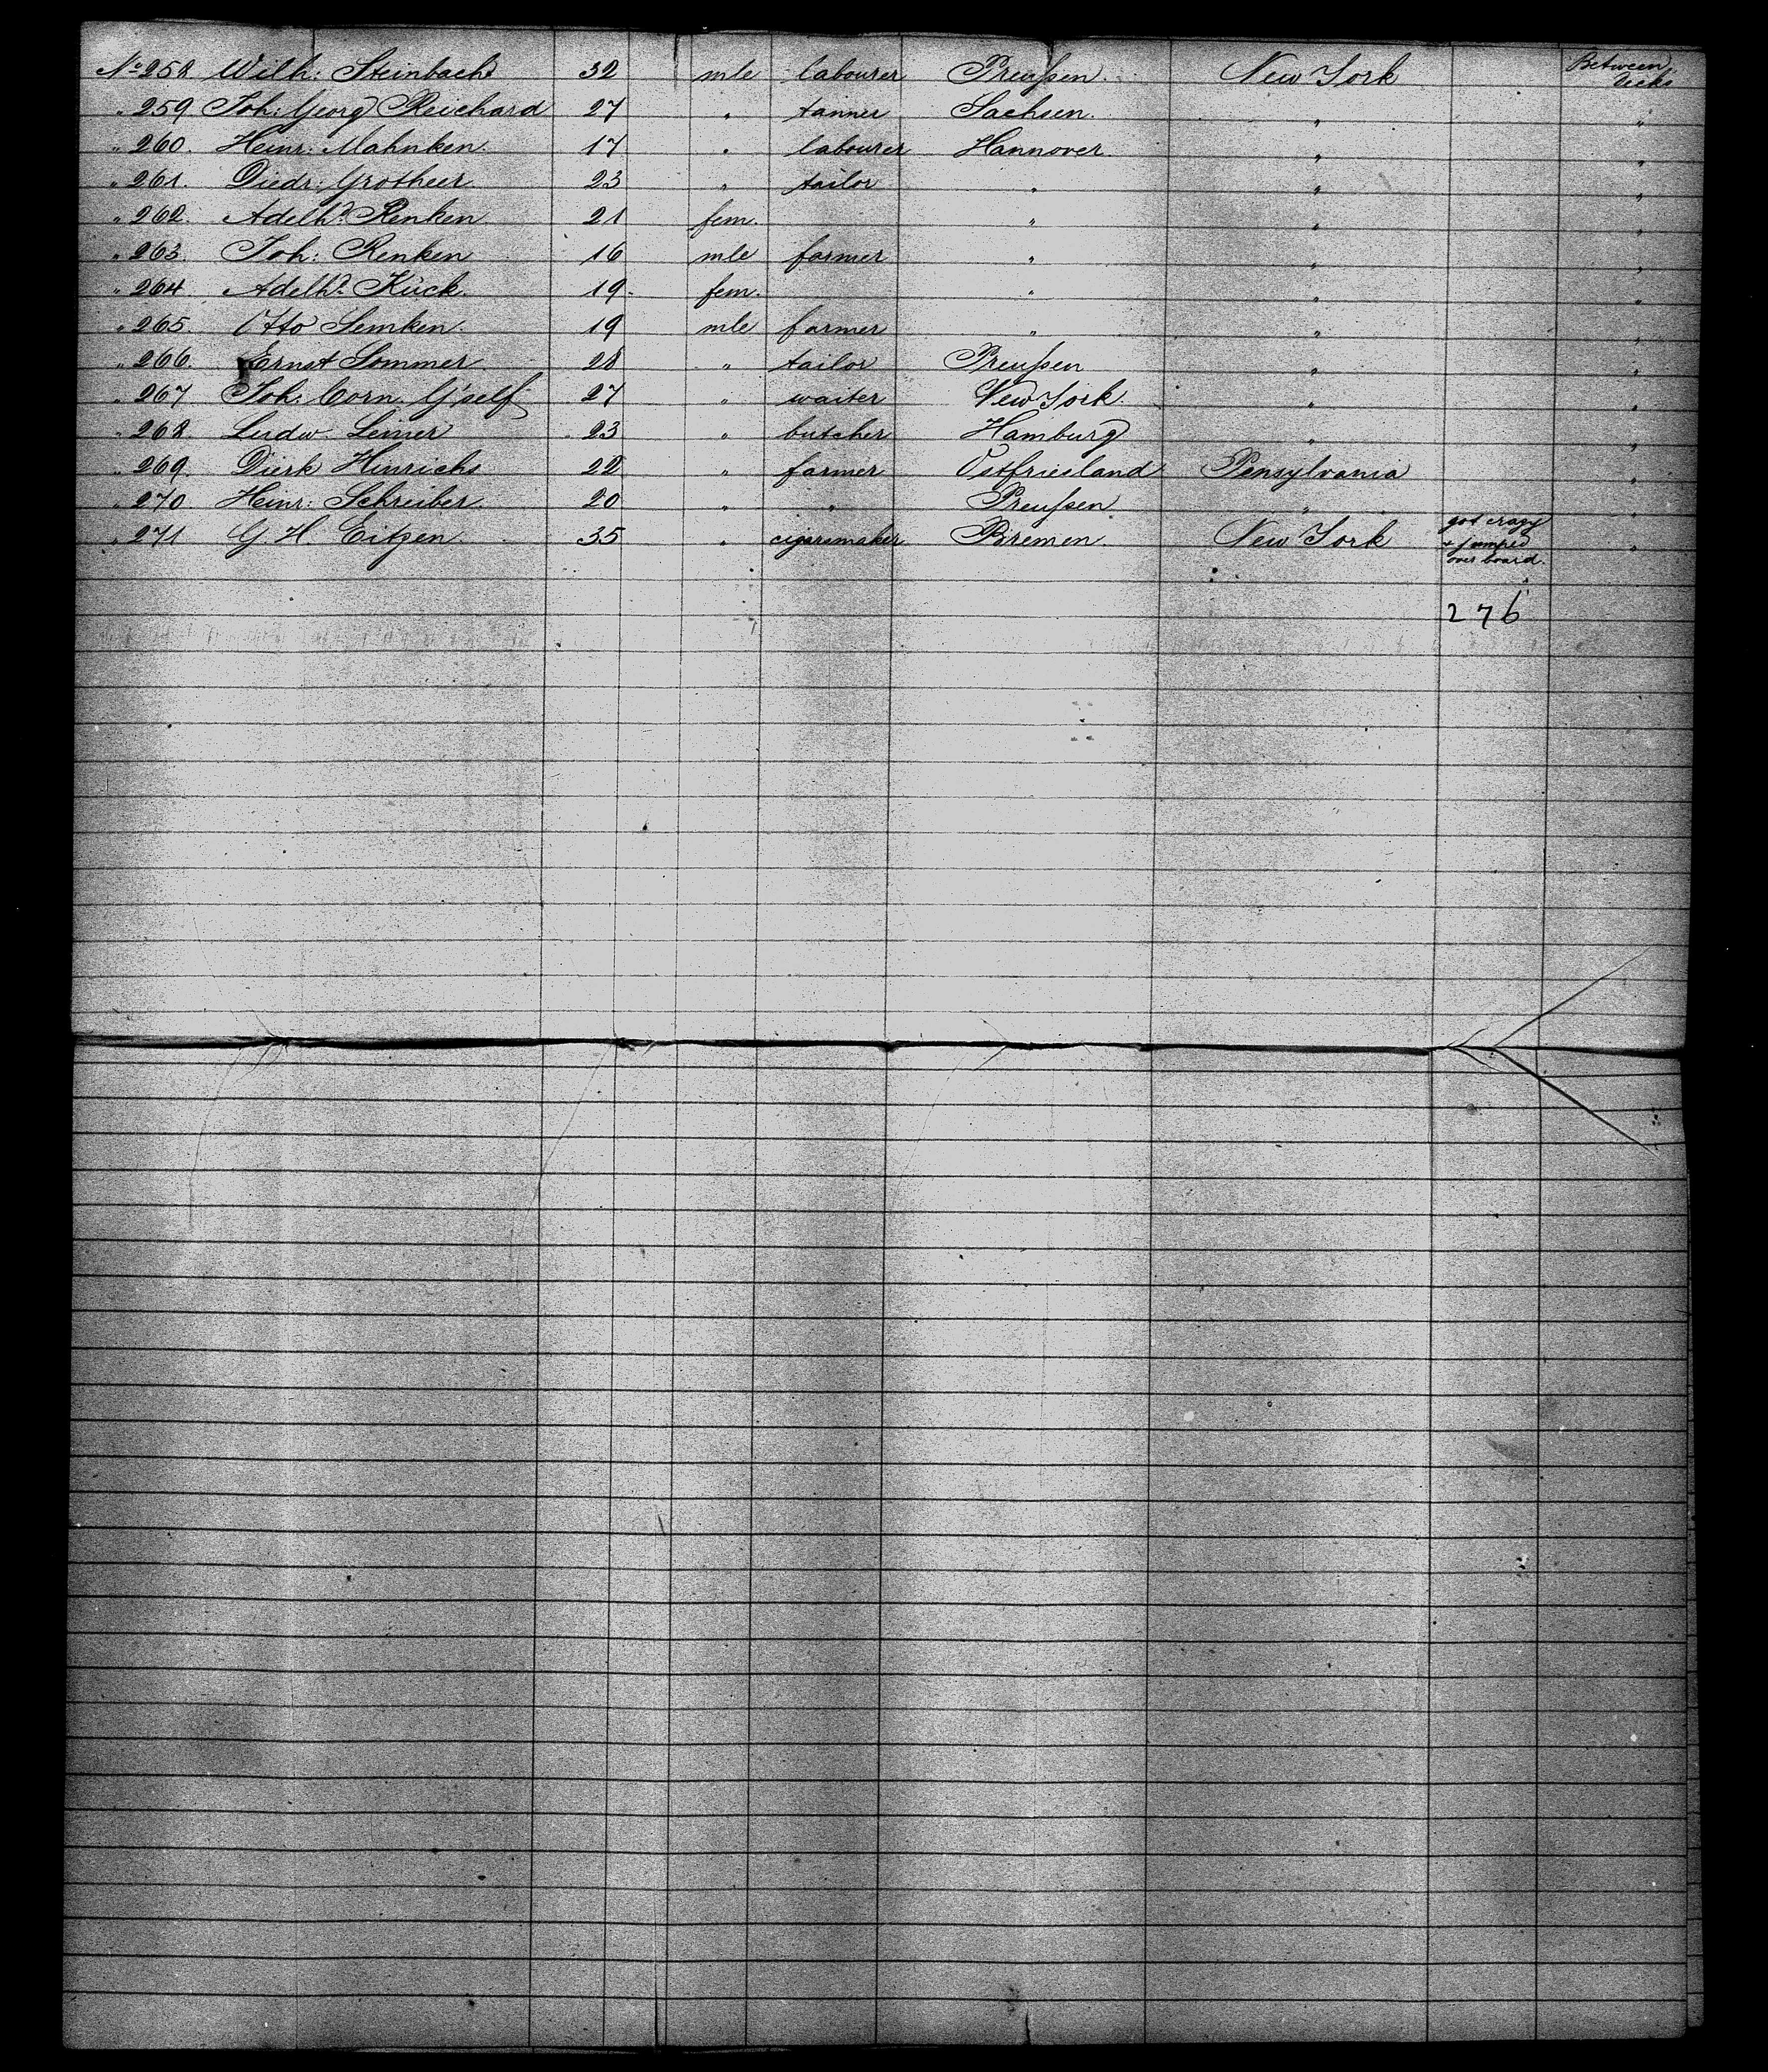 No 258 Wilh: Steinbach 32 mle labourer Preußen New York Between decks
" 259 Joh: Georg Reichard 27 " tanner Sachsen. " "
" 260. Heinr: Mahnken. 17 " labourer Hannover. " "
" 261. Diedr: Grotheer. 23 " tailor " " "
" 262. Adelhd. Renken 21 fem. " " "
" 263. Joh: Renken 16 mle farmer " " "
" 264 Adelhd. Kück. 19. fem. " " "
" 265. Otto Semken. 19 mle farmer " " "
" 266. Ernst Sommer 28 " tailor Preußen " "
" 267 Joh: Corn. G'self 27 " waiter New York. " "
" 268. Ludw. Leiner 23 " butcher Hamburg " "
" 269. Dierk Hinrichs 22 " farmer Ostfriesland Pensylvania "
" 270. Heinr: Schreiber. 20 " " Preußen " "
" 271 G. H. Eitzen. 35 " cigaremaker Bremen. New York got crazy + jumped over board. "
276